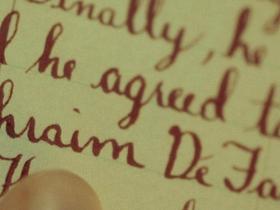 Finally, he
he agreed to
hraim Dé Fa